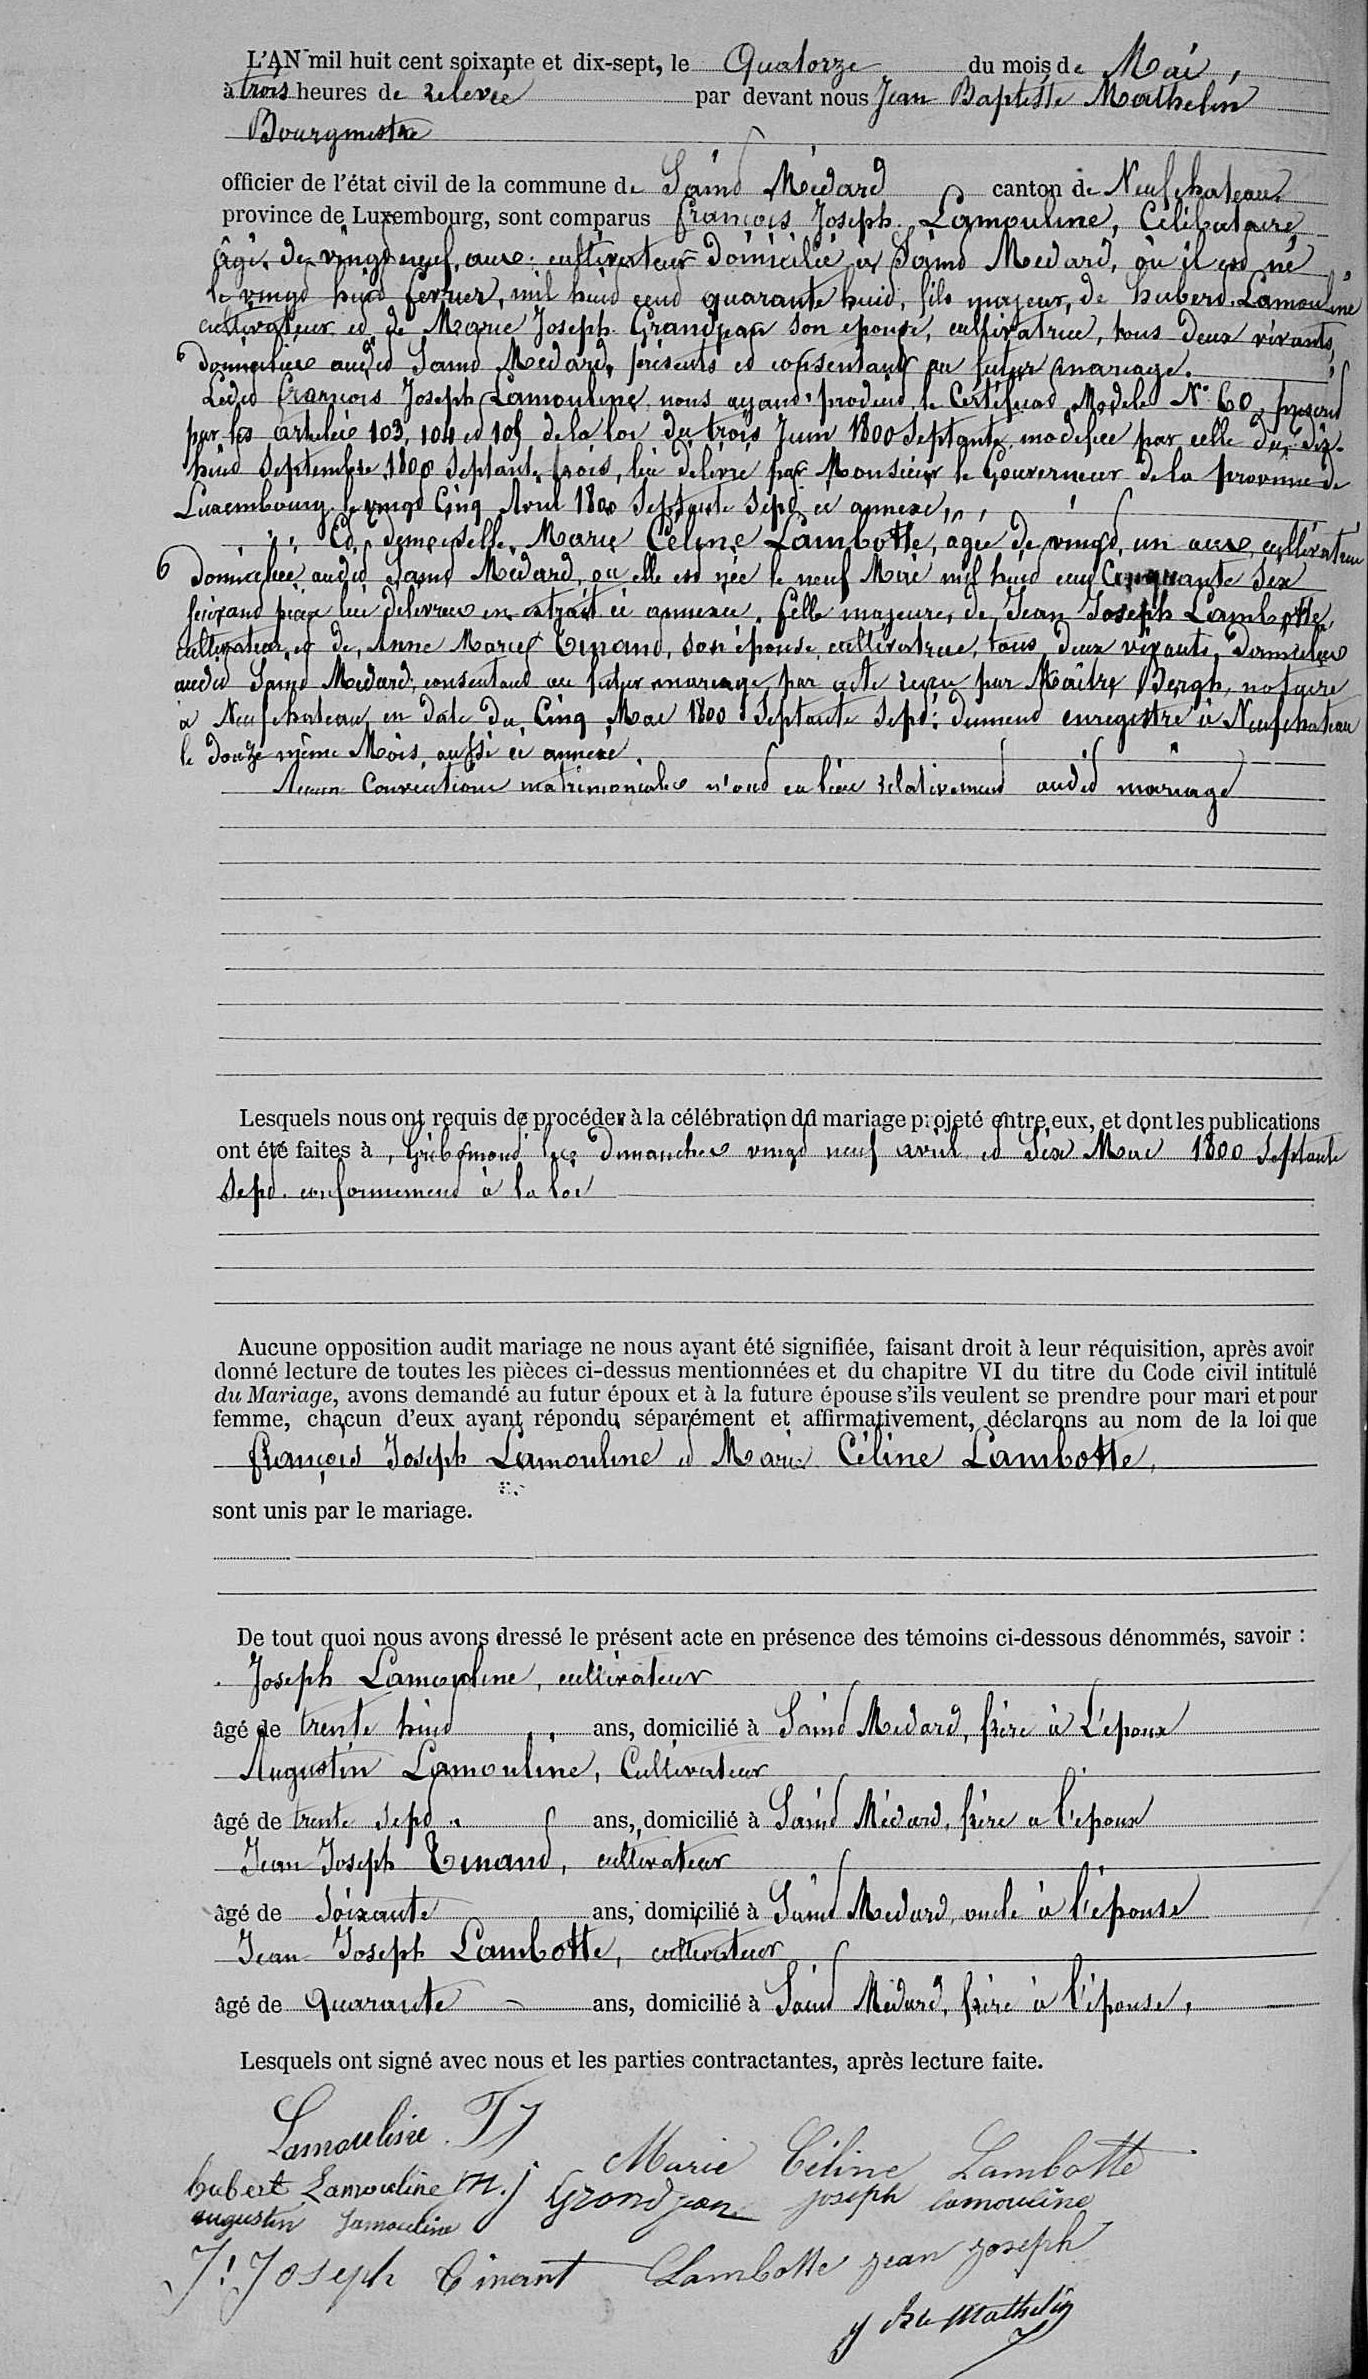 L'AN mil huit cent soixante et dix-sept, le Quatorze du mois de Mai,
à trois heures de relevée par devant nous Jean Baptiste Mathelin
Bourgmestre
officier de l'état civil de la commune de Saind Médard canton de Neufchateau
province de Luxembourg, sont comparus François Joseph Lamouline, Célibataire
âgé de vingd neuf ans cultivateur domicilié à Saind Medard, où il est né
le vingd huid fevrier, mil huid cend quarante huid, fils majeur, de huberd Lamouline
cultivateur ed de Marie Joseph Grandjean son épouse, cultivatrice, tous deux vivants,
domiciliés audid Saind Medard, présents ed consentant au futur mariage.
Ledid François Joseph Lamouline nous ayand produid le Certificad Modele N° 60 prescrid
par les articles 103, 104 ed 105 de la loi du trois Juin 1800 Septante modifiée par celle du dix-
huid Septembre 1800 Septante trois, lui délivré par Monsieur le Gouverneur de la province de
Luxembourg le vingd Cinq Avril 1800 Septante Sepd ci annexé,
Ed demoiselle Marie Céline Lambotte, agée de vingd un ans, cultivatrice
domiciliée audid Saind Médard, ou elle est née le neuf Mai mil huid cend Cinquante Six
suivand pièce lui délivrée en extrait ci annexée. fille majeure, de Jean Joseph Lambotte,
cultivateur ed de, Anne Marie Tinand, son épouse, cultivatrice, tous deux vivants, domiciliés
audid Saind Medard, consentand au futur mariage par acte reçu par Maître Bergh, notaire
à Neufchateau en date du Cinq Mai 1800 Septante Sepd: dumend enregistré à Neufchateau
le douze même Mois, aussi ci annexé
Aucun Conventions matrimoniales n'ond eu lieu relativemend audid mariage
Lesquels nous ont requis de procéder à la célébration du mariage projeté entre eux, et dont les publications
ont été faites à Gribomond les dimanches vingd neuf avril ed Six Mai 1800 Septante
Sepd conformemend à la loi
Aucune opposition audit mariage ne nous ayant été signifiée, faisant droit à leur réquisition, après avoir
donné lecture de toutes les pièces ci-dessus mentionnées et du chapitre VI du titre du Code civil intitulé
du Mariage, avons demandé au futur époux et à la future épouse s'ils veulent se prendre pour mari et pour
femme, chacun d'eux ayant répondu séparément et affirmativement, déclarons au nom de la loi que
François Joseph Lamouline ed Marie Céline Lambotte,
sont unis par le mariage.
De tout quoi nous avons dressé le présent acte en présence des témoins ci-dessous dénommés, savoir :
Joseph Lamouline, cultivateur
âgé de trente huid ans, domicilié à Saind Medard, frère à L'époux
Augustin Lamouline, Cultivateur
âgé de trente sepd ans, domicilié à Saind Médard, frère a l'époux
Jean Joseph Tinand, cultivateur
âgé de Soixante ans, domicilié à Saind Medard, oncle à l'épouse
Jean Joseph Lambotte, cultivateur
âgé de Quarante ans, domicilié à Saind Médard, frère à l'épouse,
Lesquels ont signé avec nous et les parties contractantes, après lecture faite.
Lamouline FJ
Marie Céline Lambotte
hubert Lamouline m.j Grandjean joseph lamouline
augustin Lamouline
J: Joseph Tinant Lambotte jean joseph
J Bte Mathelin